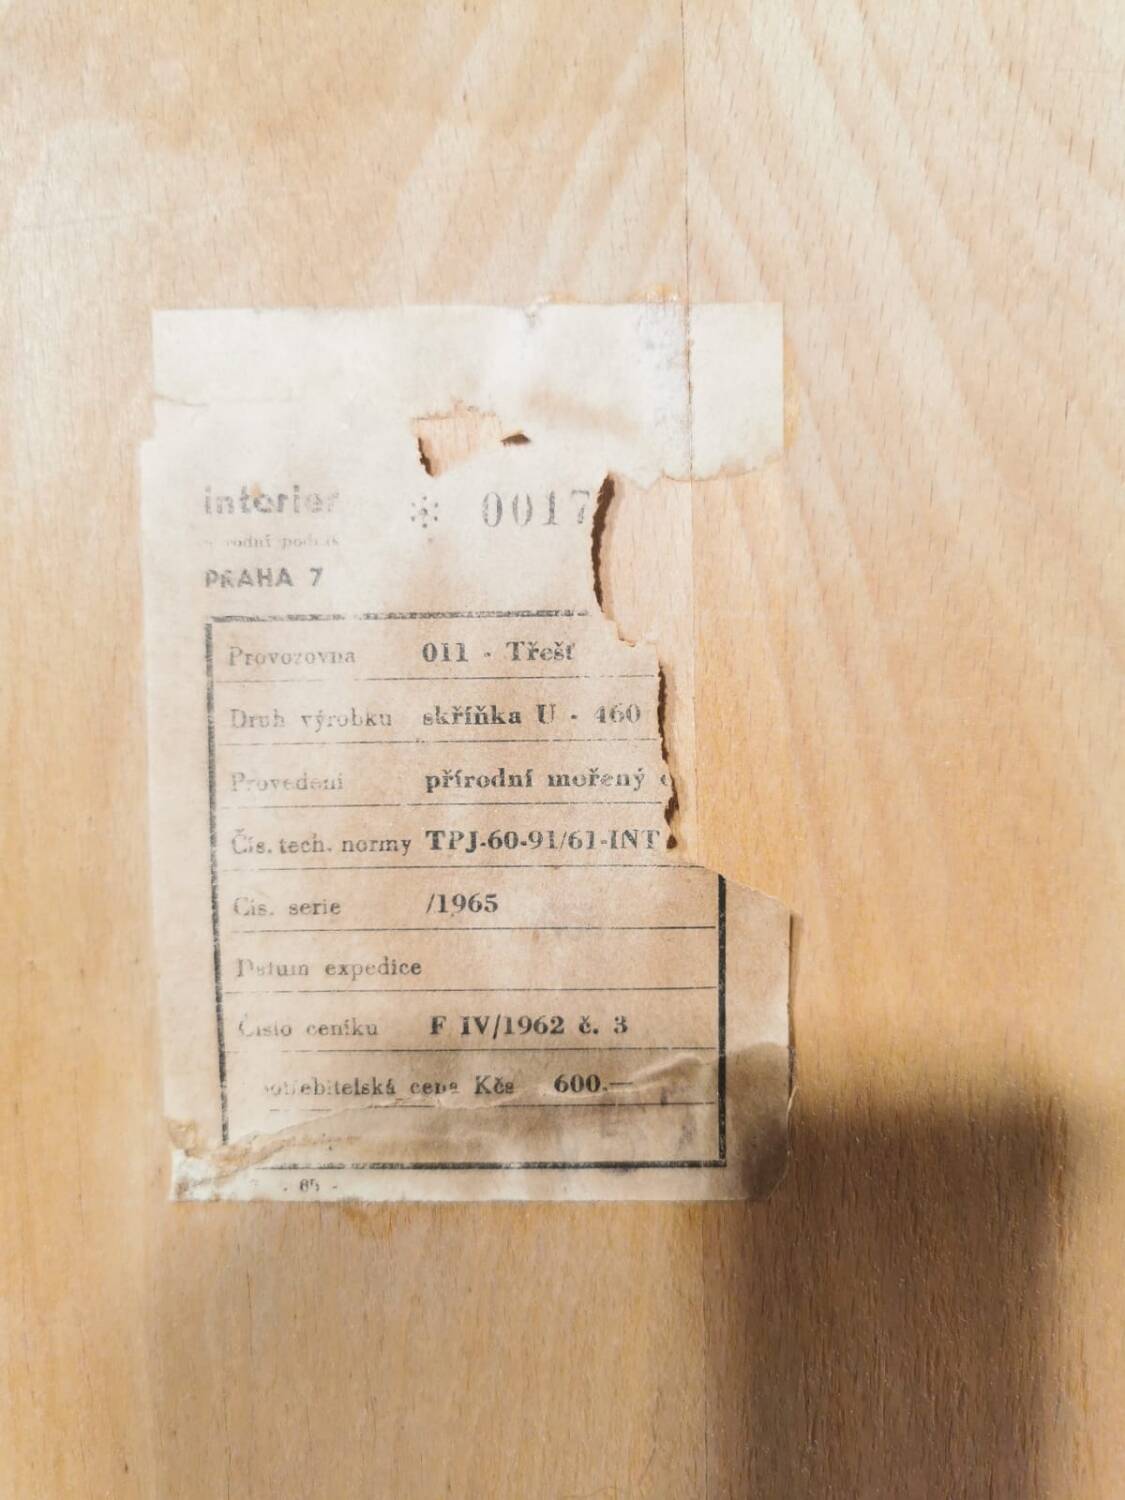 interier * 0017
PRAHA 7
Provozovna 011 - Třešť
Druh výrobku skříňka U - 460
Provedení přírodní mořený
Čís. tech. normy TPJ-60-91/61-INT
Čís. serie /1965
Datum expedice
Číslo ceníku F IV/1962 č. 3
otřebitelská cena Kčs 600.—